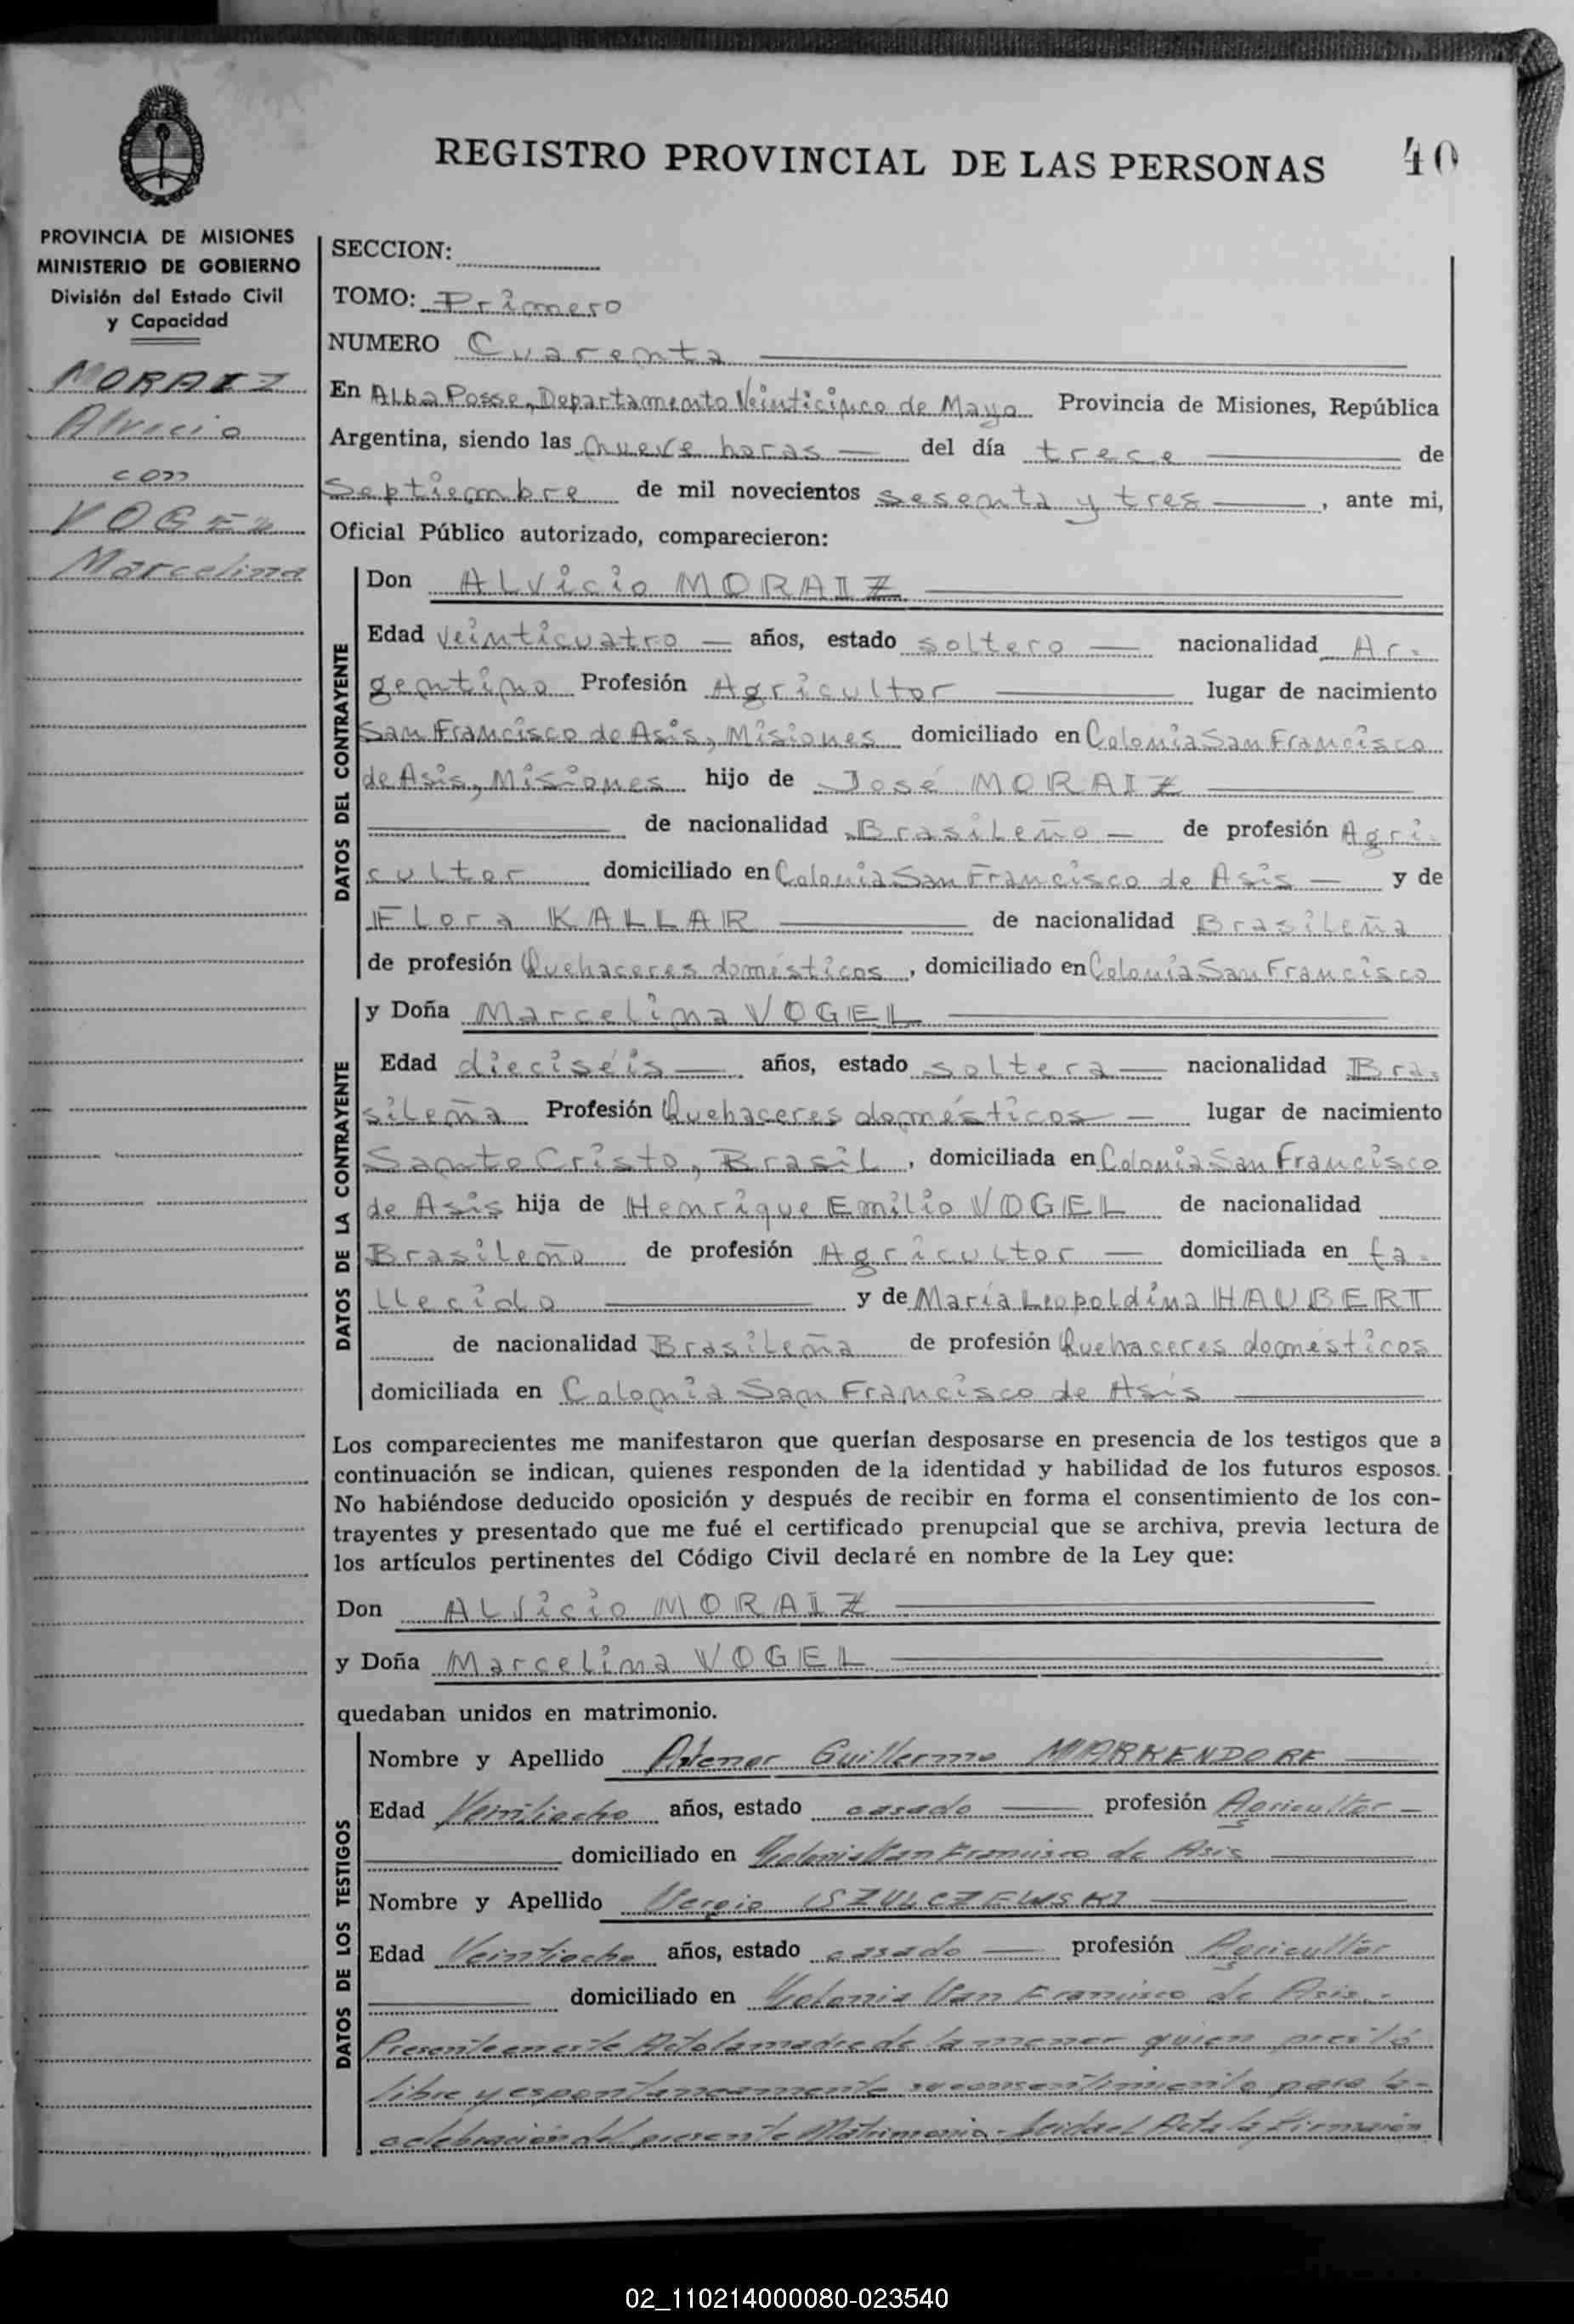 REGISTRO PROVINCIAL DE LAS PERSONAS 40
PROVINCIA DE MISIONES
MINISTERIO DE GOBIERNO
División del Estado Civil
y Capacidad
MORAIZ
Alvicio
con
VOGEL
Marcelina
SECCION:
TOMO: Primero
NUMERO Cuarenta
En Alba Posse, Departamento Veinticinco de Mayo Provincia de Misiones, República
Argentina, siendo las nueve horas — del día trece — de
Septiembre de mil novecientos sesenta y tres —, ante mi,
Oficial Público autorizado, comparecieron:
DATOS DEL CONTRAYENTE
Don ALVicio MORAIZ
Edad veinticuatro — años, estado soltero — nacionalidad Ar-
gentino Profesión Agricultor — lugar de nacimiento
San Francisco de Asis, Misiones domiciliado en Colonia San Francisco
de Asis, Misiones hijo de José MORAIZ —
— de nacionalidad Brasileño — de profesión Agri-
cultor domiciliado en Colonia San Francisco de Asis — y de
Flora KALLAR — de nacionalidad Brasileña
de profesión Quehaceres domésticos, domiciliado en Colonia San Francisco
DATOS DE LA CONTRAYENTE
y Doña Marcelina VOGEL —
Edad dieciséis — años, estado soltera — nacionalidad Bra-
sileña Profesión Quehaceres domésticos — lugar de nacimiento
Santo Cristo, Brasil, domiciliada en Colonia San Francisco
de Asis hija de Henrique Emilio VOGEL de nacionalidad
Brasileño de profesión Agricultor — domiciliada en fa-
llecido — y de María Leopoldina HAUBERT
de nacionalidad Brasileña de profesión Quehaceres domésticos
domiciliada en Colonia San Francisco de Asís —
Los comparecientes me manifestaron que querían desposarse en presencia de los testigos que a
continuación se indican, quienes responden de la identidad y habilidad de los futuros esposos.
No habiéndose deducido oposición y después de recibir en forma el consentimiento de los con-
trayentes y presentado que me fué el certificado prenupcial que se archiva, previa lectura de
los artículos pertinentes del Código Civil declaré en nombre de la Ley que:
Don ALVicio MORAIZ —
y Doña Marcelina VOGEL —
quedaban unidos en matrimonio.
DATOS DE LOS TESTIGOS
Nombre y Apellido Guillermo MARKENDORF —
Edad Veintiocho años, estado casado — profesión Agricultor —
— domiciliado en Colonia San Francisco de Asis —
Nombre y Apellido Sergio SZULCZEWSKI —
Edad Veintiocho años, estado casado — profesión Agricultor
— domiciliado en Colonia San Francisco de Asis.-
Presente en este Acto la madre de la menor quien prestó
libre y espontaneamente su consentimiento para la
celebración del presente Matrimonio.- Leida el Acta la firmaron
02_110214000080-023540